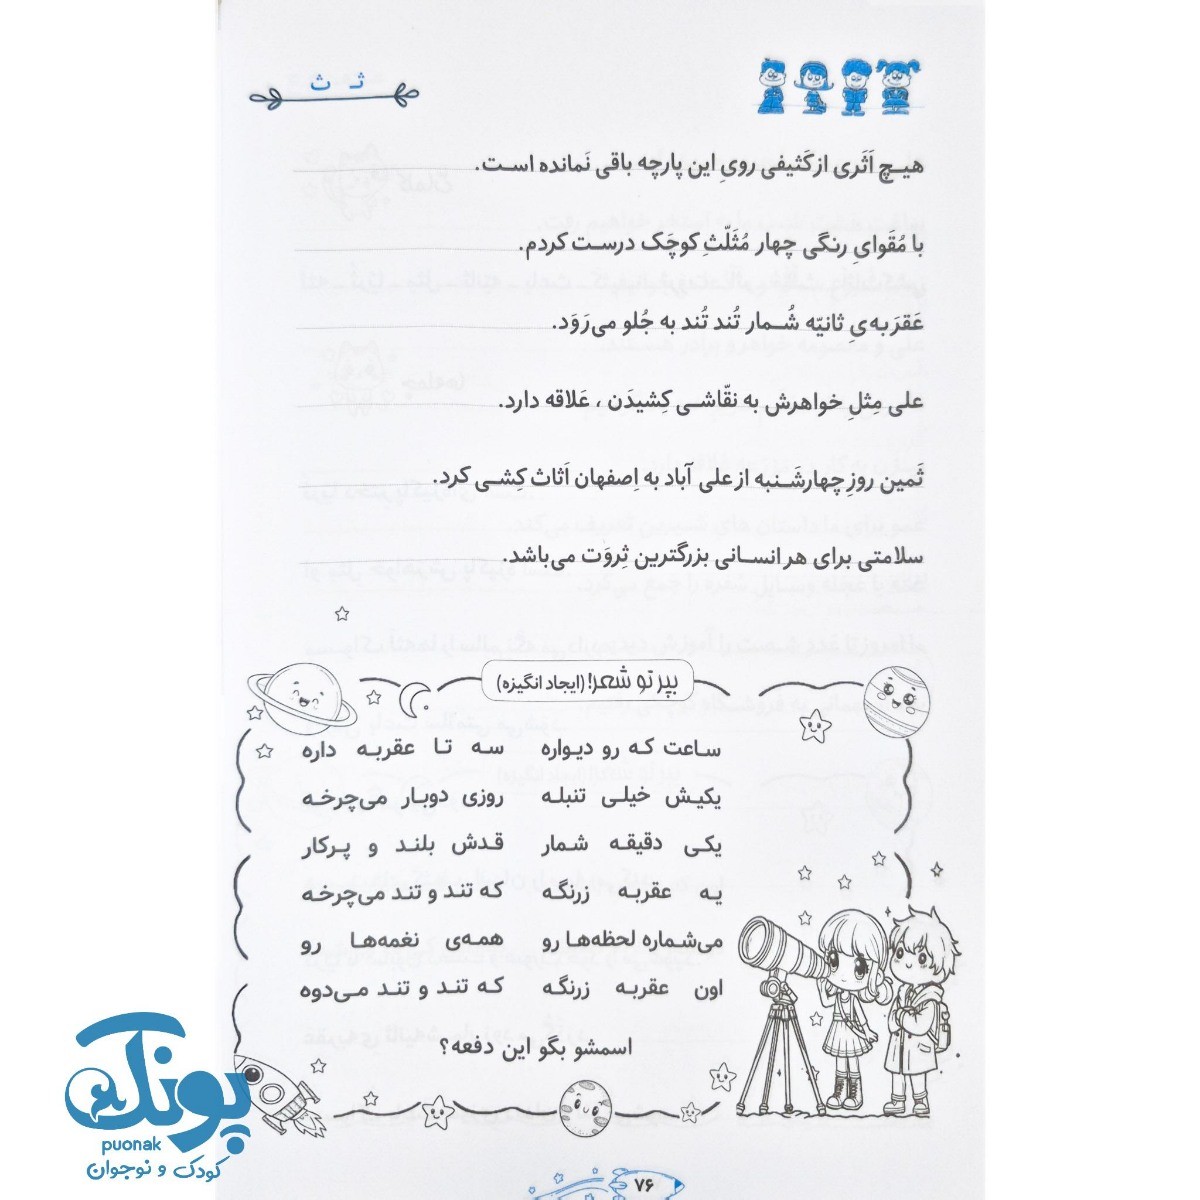 ثـ ث
هیـچ اَثَری از کَثیفی رویِ این پارچه باقی نَمانده اسـت.
با مُقَوایِ رنگی چهار مُثَلّثِ کوچَک درسـت کردم.
عَقرَبه‌یِ ثانیّه شُـمار تُند تُند به جُلو می‌رَوَد.
علی مِثلِ خواهرش به نقّاشـی کِشیدَن ، عَلاقه دارد.
ثَمین روزِ چهارشَـنبه از علی آباد به اِصفهان اَثاث کِشـی کرد.
سلامتی برای هر انسـانی بزرگترین ثِروَت می‌باشد.
بپر تو شعر! (ایجاد انگیزه)
ساعت که رو دیواره سه تا عقربه داره
یکیش خیلی تنبله روزی دوبار می‌چرخه
یکی دقیقه شمار قدش بلند و پرکار
یه عقربه زرنگه که تند و تند می‌چرخه
می‌شماره لحظه‌ها رو همه‌ی نغمه‌ها رو
اون عقربه زرنگه که تند و تند می‌دوه
اسمشو بگو این دفعه؟
۷۶
پونک
puonak
کودک و نوجوان